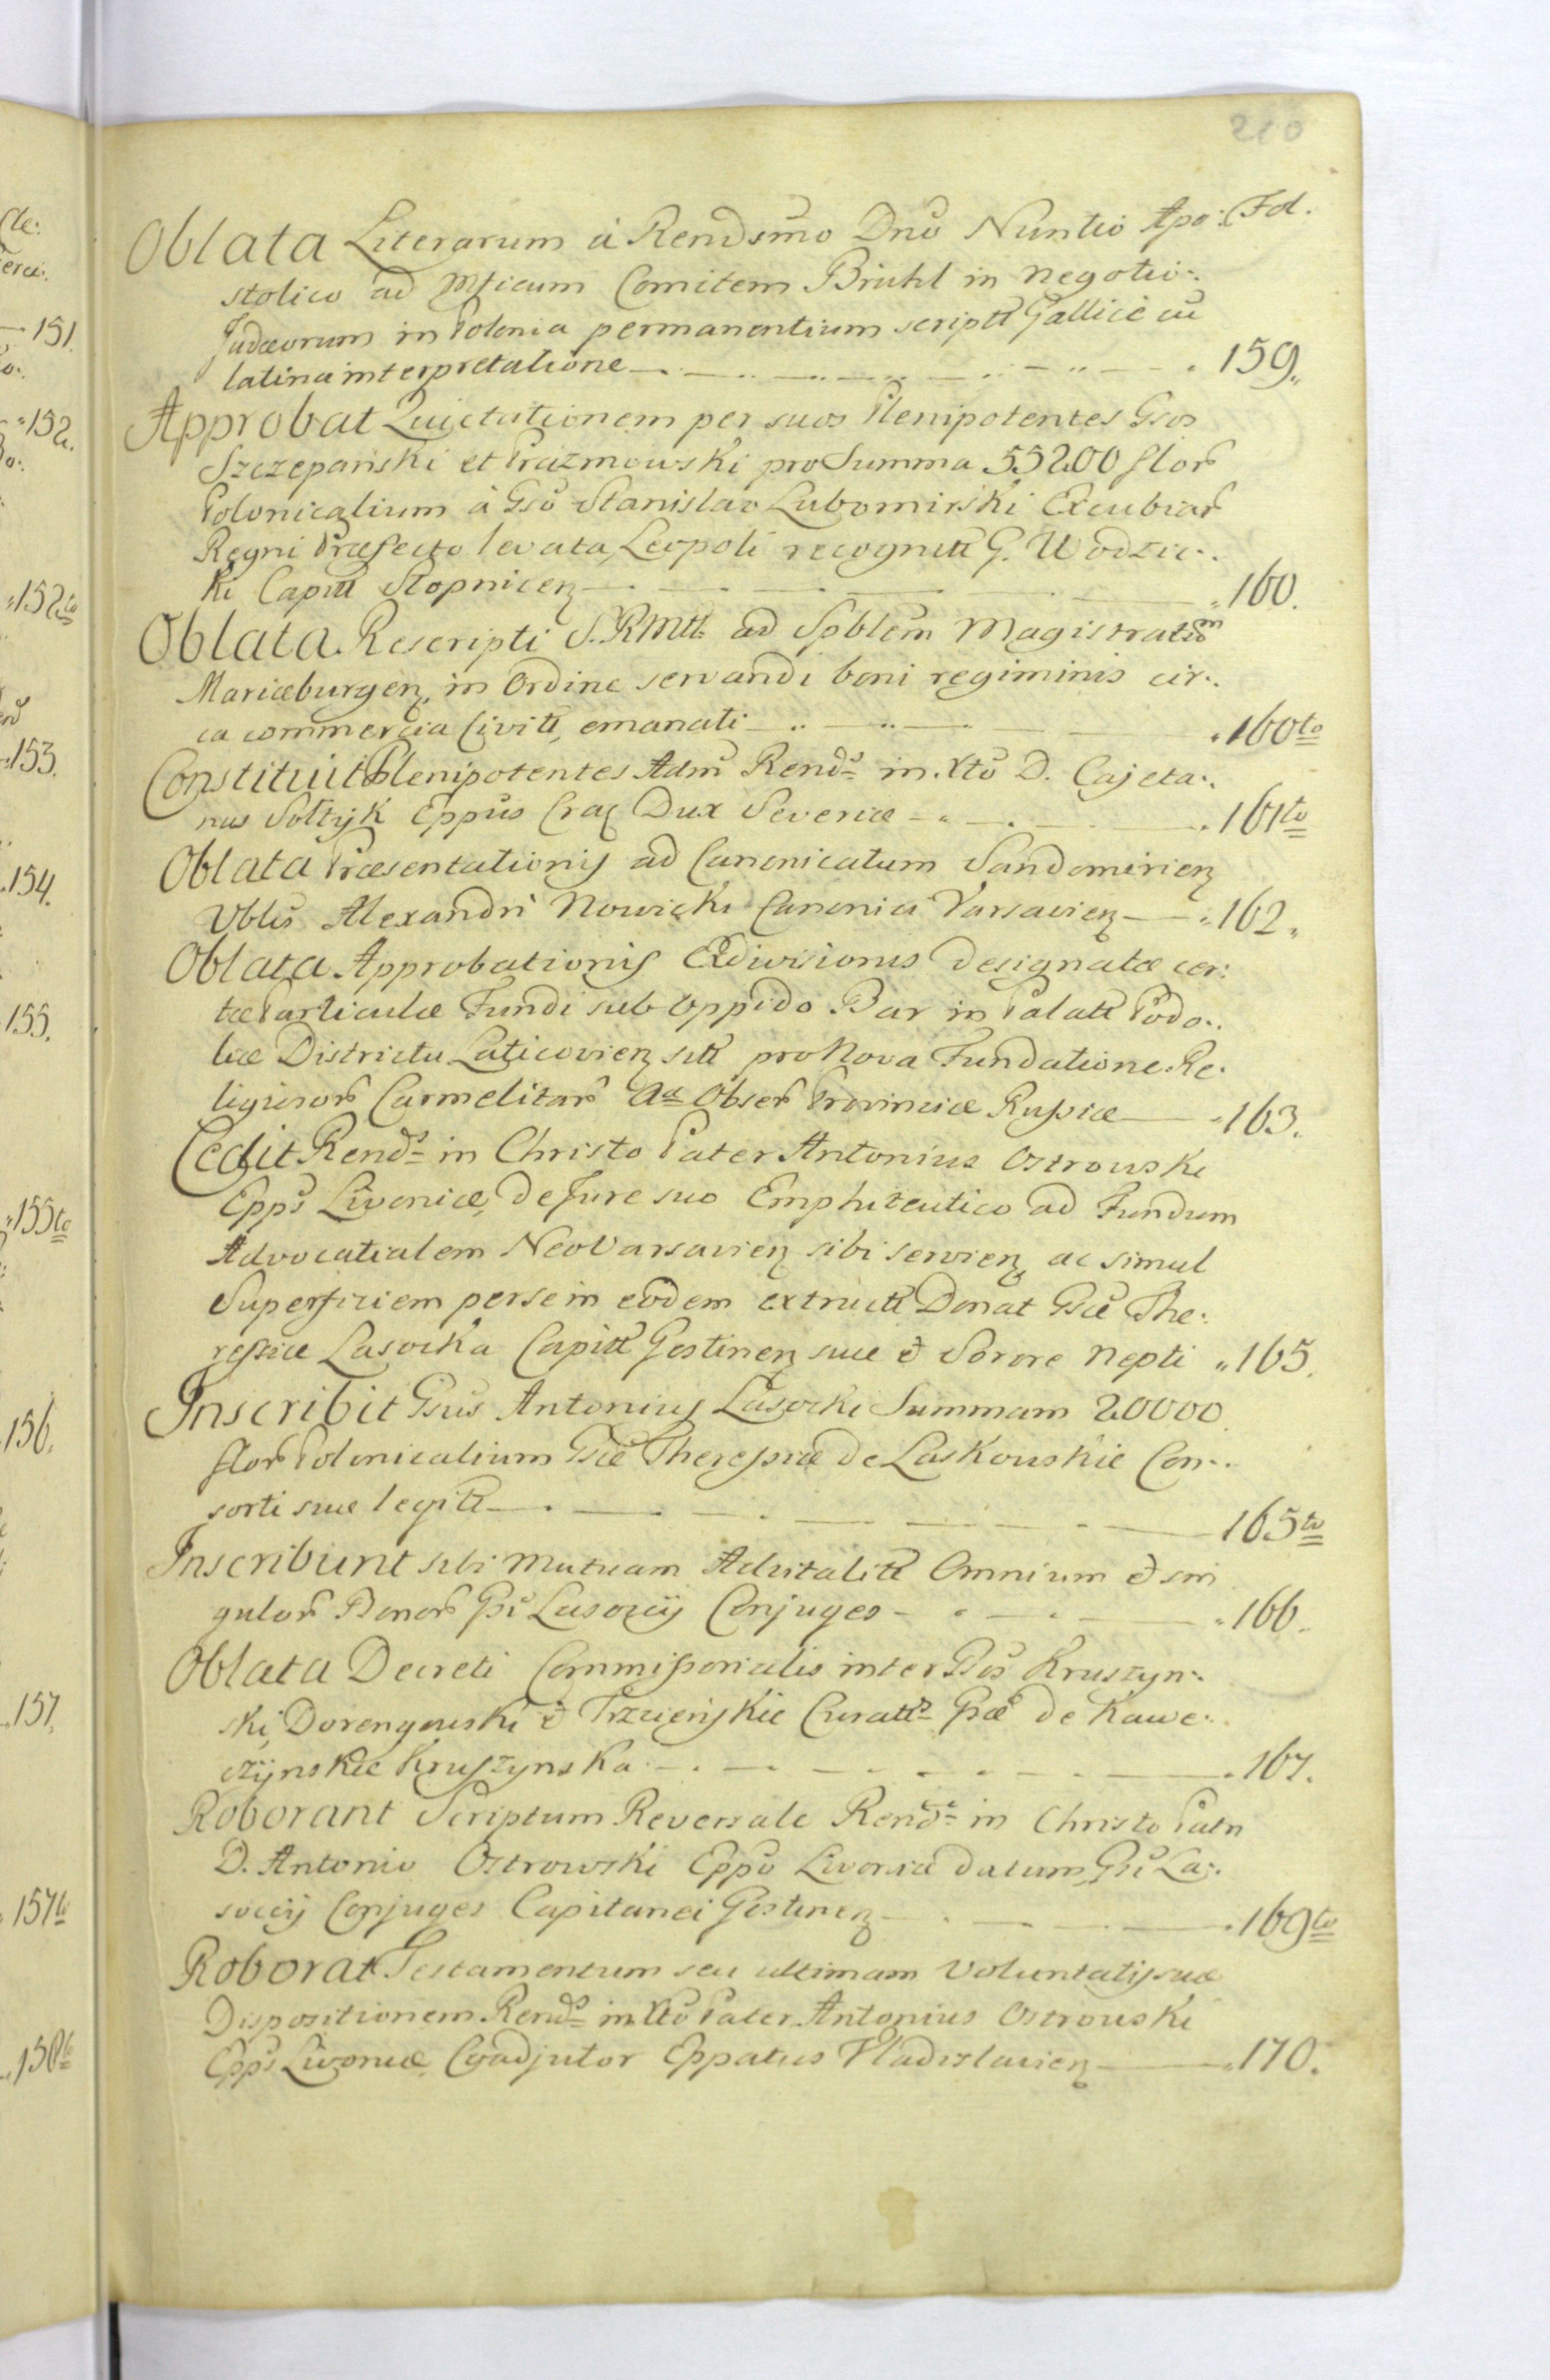 210
Fol.
Oblata Literarum à Rendsmo Dno Nuntio Apo:
stolico ad Mficum Comitem Brühl in negotio:
Judæorum in Polonia permanentium scriptt Gallicè cũ
latina interpretatione 159.
Approbat Quietationem per suos Plenipotentes Gsos
Szczepański et Prazmowski pro Summa 55200 flor
Polonicalium à Gso Stanislao Lubomirski Excubiar
Regni Præfecto levata, Leopoli recognitt G. Wodzic:
ki Capitt Stopnicen 160.
Oblata Rescripti S.RMtt ad Spblem Magistratum
Mariæburgen, in Ordine servandi boni regiminis cir:
ca commercia Civitt, emanati 160to
Constituit Plenipotentes Adm Rends in Xto D. Cajeta:
nus Sołtyk Eppus Crac Dux Severiæ 161to
Oblata Præsentationis ad Canonicatum Sandomirien
Vblis Alexandri Nowicki Canonici Varsavien 162.
Oblata Approbationis Exdivisionis designatæ cer:
tæ Particulæ Fundi sub Oppido Bar in Palatt Podo:
liæ Districtu Laticovien sitt pro Nova Fundatione Re:
ligiosor Carmelitar Aæ Obser Provinciæ Russiæ 163.
Cedit Rends in Christo Pater Antonius Ostrowski
Epps Livoniæ, de Jure suo Emphiteutico ad Fundum
Advocatialem NeoVarsavien sibi servien, ac simul
Superficiem per se in eodem extructt Donat Gsæ The:
ressiæ Lasocka Capitt Gostinen suæ è Sorore Nepti 165.
Inscribit Gsus Antonius Lasocki Summam 20000
flor Polonicalium Gsæ Theressiæ de Laskowskie Con:
sorti suæ legitt 165to
Inscribunt sibi mutuam Advitalitt Omnium & sin
gulor Bonor Gsi Lasocij Conjuges 166.
Oblata Decreti Commissorialis inter Gsos Kruszyn:
ski, Dorengowski & Trzcienskie Curatt Gsæ de Kawe:
czynskie Kruszynska 167.
Roborant Scriptum Reversale Rende in Christo Patri
D. Antonio Ostrowski Eppo Livoniæ datum, Gsi La:
socij Conjuges Capitanei Gostinen 169to
Roborat Testamentum seu ultimam Voluntatis suæ
Dispositionem Rends in Xto Pater Antonius Ostrowski
Epps Livoniæ Coadjutor Eppatus Vladislavien 170.
151.
152.
152to
153.
154.
155.
155to
156.
157.
157to
158to